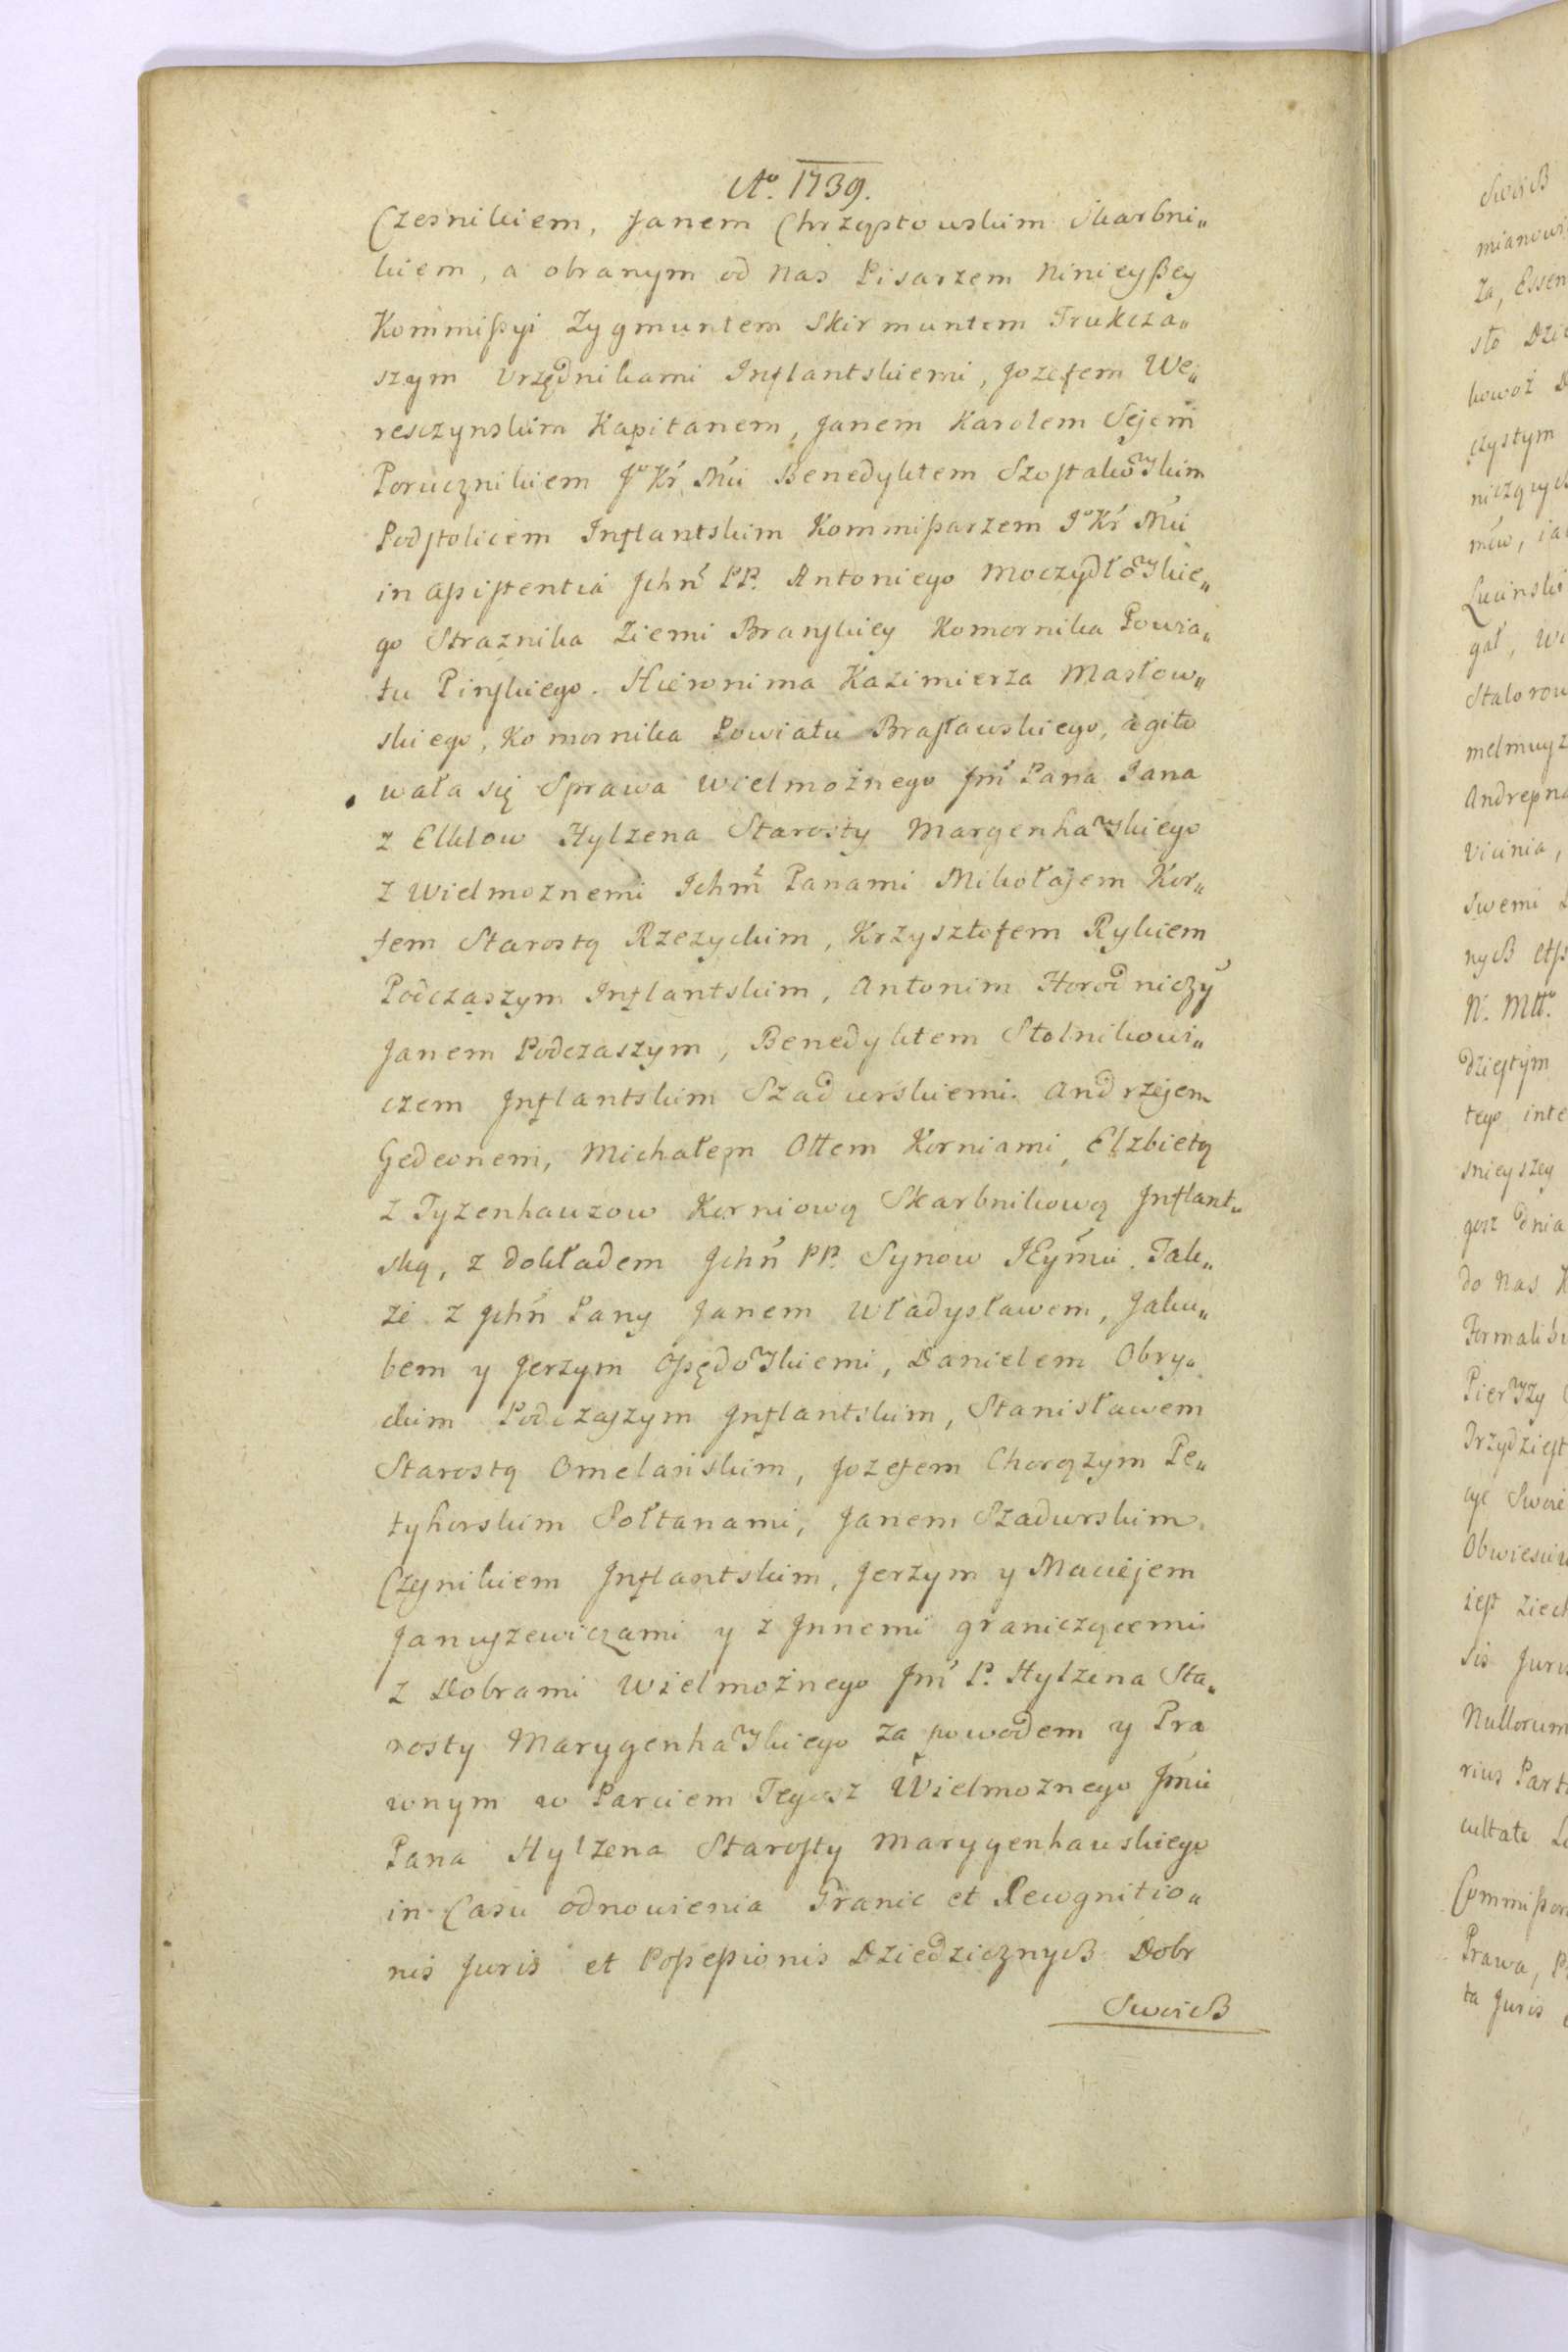 Ao. 1739.
Czesnikiem, Janem Chrząstowskim Skarbni„
kiem, a obranym od Nas Pisarzem Ninieyßey
Kommißyi Zygmuntem Skirmuntem Trukcza„
szym Urzędnikami Inflantskiemi, Jozefem We„
resczynskim Kapitanem, Janem Karolem Sejem
Porucznikiem Jo Kr Mći Benedyktem Szostakowskim
Podstolicem Inflantskim Kommißarzem Jo Kr Mći
in aßistentia Jchḿ PP. Antoniego Moczydłowskie„
go Straznika Ziemi Branskiey Komornika Powia„
tu Pinskiego. Hieronima Kazimierza Masłow„
skiego, Komornika Powiatu Brasławskiego, agito
wała się Sprawa Wielmożnego Jm̃ Pana Jana
z Elklow Hylzena Starosty Margenhawskiego
z Wielmoznemi Ichm̃ Panami Mikołajem Kor„
fem Starostą Rzezyckim, Krzysztofem Rykiem
Podczaszym Inflantskim, Antonim Horodniczÿ
Janem Podczaszym, Benedyktem Stolnikowi„
czem Inflantskim Szadurskiemi. Andrzejem
Gedeonem, Michałem Ottem Korniami, Elzbietą
z Tyzenhauzow Korniową Skarbnikową Inflant„
ską, z dokładem Jchń PP. Synow JEyḿci. Tak„
że z Jchń Pany Janem Władysławem, Jaku„
bem y Jerzym Oßędowskiemi, Danielem Obry„
ckim Podczaszym Inflantskim, Stanisławem
Starostą Omelańskim, Jozefem Chorążym Pe„
tyhorskim Sołtanami, Janem Szadurskim
Czesnikiem Inflantskim, Jerzym y Maciejem
Januszewiczami y z Jnnemi graniczącemi
z Dobrami Wielmożnego Jm̃ P. Hylzena Sta„
rosty Marygenhawskiego za powodem y Pra
wnym w Parciem Tegosz Wielmożnego Jmći
Pana Hylzena Starosty Marygenhauskiego
in Casu odnowienia Granic et Recognitio„
nis Juris et Poßeßionis Dziedzicznych Dobr
Swoich